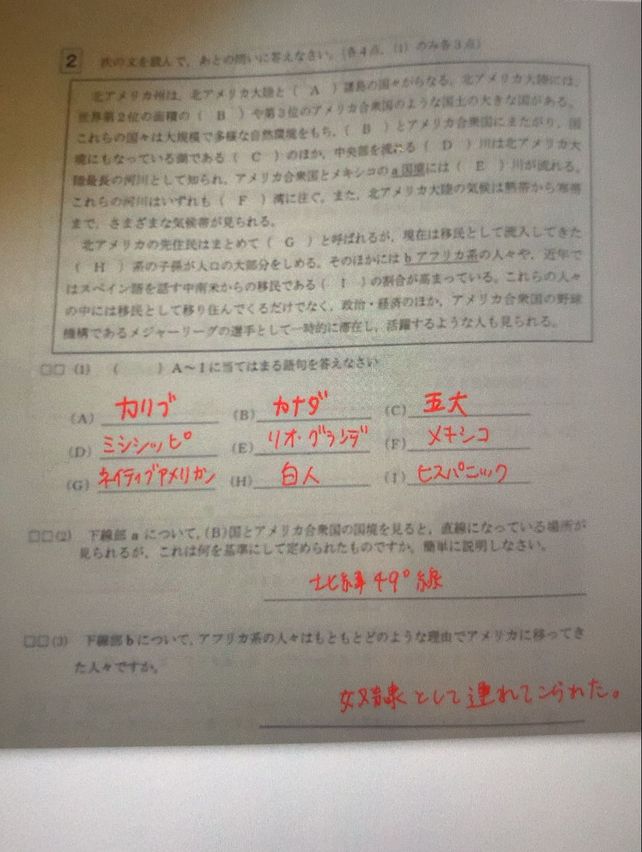 2 次の文を読んで，あとの問いに答えなさい。(各4点，(1)のみ各3点)
北アメリカ州は，北アメリカ大陸と（ A ）諸島の国々からなる。北アメリカ大陸には，
世界第2位の面積の（ B ）や第3位のアメリカ合衆国のような国土の大きな国がある。
これらの国々は大規模で多様な自然環境をもち，（ B ）とアメリカ合衆国にまたがり，国
境にもなっている湖である（ C ）のほか，中央部を流れる（ D ）川は北アメリカ大
陸最長の河川として知られ，アメリカ合衆国とメキシコのa国境には（ E ）川が流れる。
これらの河川はいずれも（ F ）湾に注ぐ。また，北アメリカ大陸の気候は熱帯から寒帯
まで，さまざまな気候帯が見られる。
北アメリカの先住民はまとめて（ G ）と呼ばれるが，現在は移民として流入してきた
（ H ）系の子孫が人口の大部分をしめる。そのほかにはbアフリカ系の人々や，近年で
はスペイン語を話す中南米からの移民である（ I ）の割合が高まっている。これらの人々
の中には移民として移り住んでくるだけでなく，政治・経済のほか，アメリカ合衆国の野球
機構であるメジャーリーグの選手として一時的に滞在し，活躍するような人も見られる。
□□(1) （ ）A～Iに当てはまる語句を答えなさい
(A) カリブ (B) カナダ (C) 五大
(D) ミシシッピ (E) リオ・グランデ (F) メキシコ
(G) ネイティブアメリカン (H) 白人 (I) ヒスパニック
□□(2) 下線部aについて，(B)国とアメリカ合衆国の国境を見ると，直線になっている場所が
見られるが，これは何を基準にして定められたものですか。簡単に説明しなさい。
北緯49°線
□□(3) 下線部bについて，アフリカ系の人々はもともとどのような理由でアメリカに移ってき
た人々ですか。
奴隷として連れてこられた。